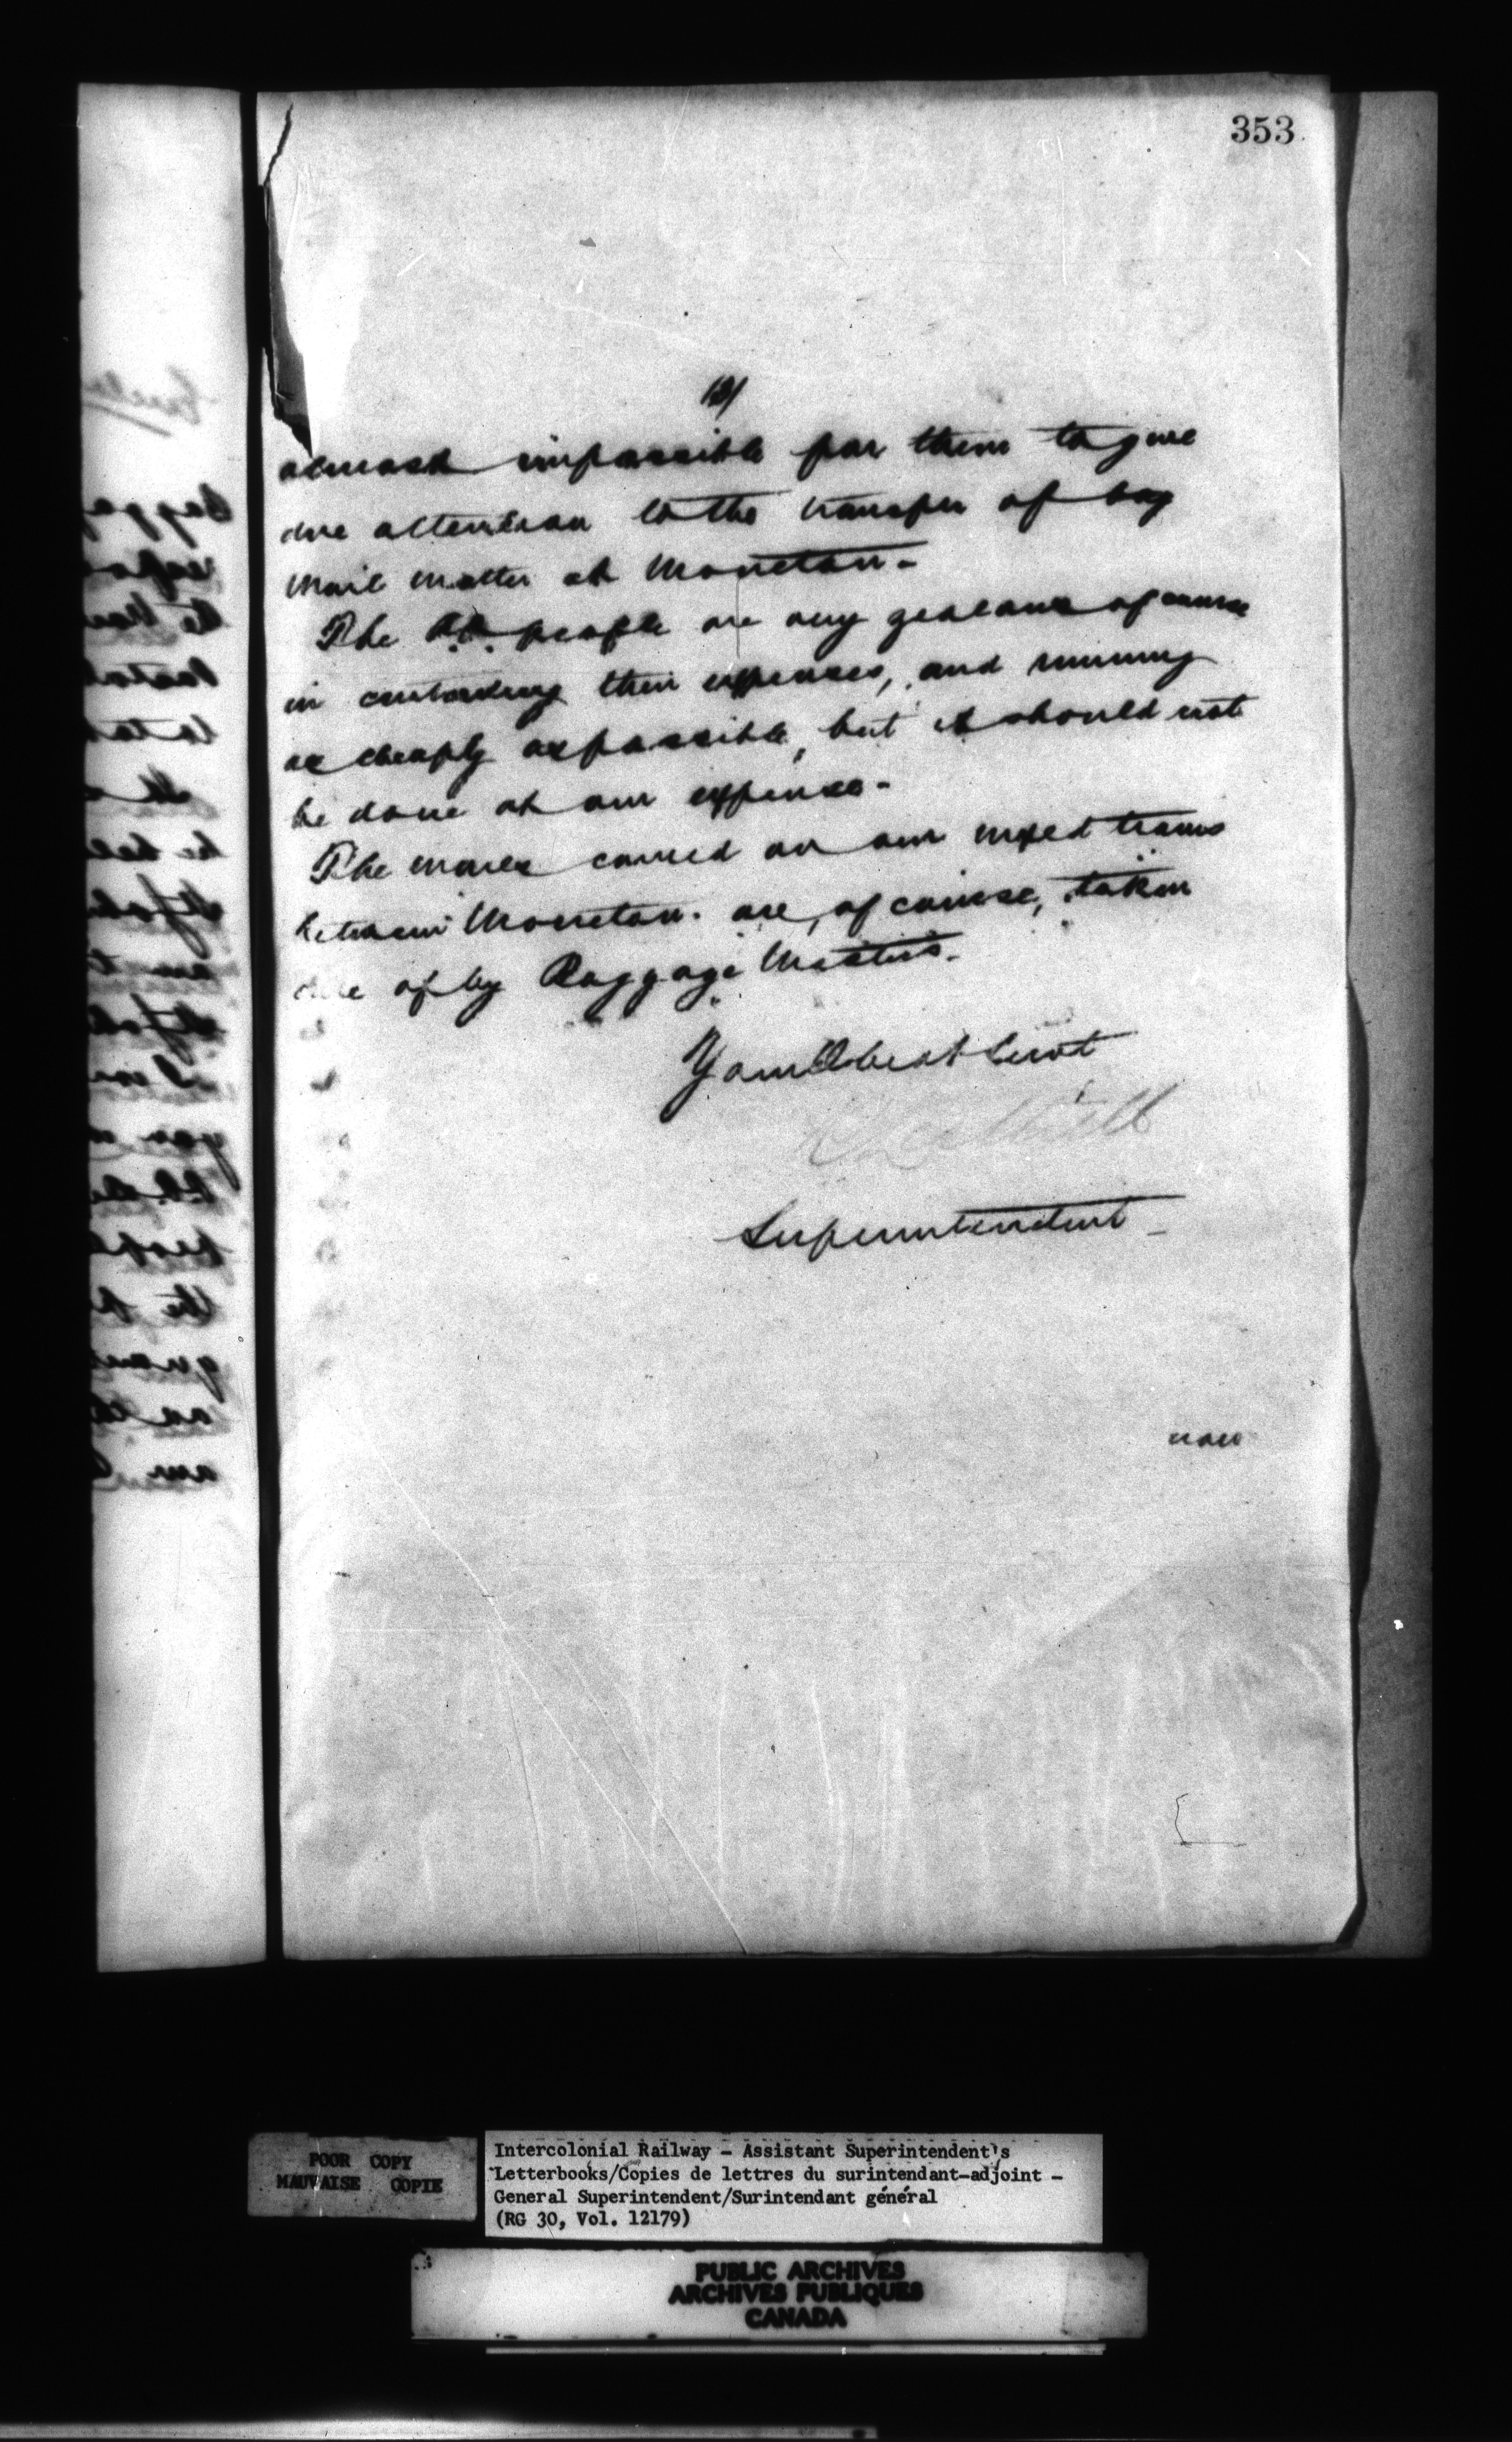 353
(3)
almost impossible for them to give
due attention to the transfer of bag
mail matter at Moncton.
The P.O. people are very zealous of course
in curtailing their expenses, and running
as cheaply as possible, but it should not
be done at our expense.
The mails carried on our mixed trains
between Moncton. are, of course, taken
care of by Baggage Masters.
Your Obedt Servt
Superintendent
now
POOR COPY
MAUVAISE COPIE
Intercolonial Railway - Assistant Superintendent's
Letterbooks/Copies de lettres du surintendant-adjoint -
General Superintendent/Surintendant général
(RG 30, Vol. 12179)
PUBLIC ARCHIVES
ARCHIVES PUBLIQUES
CANADA